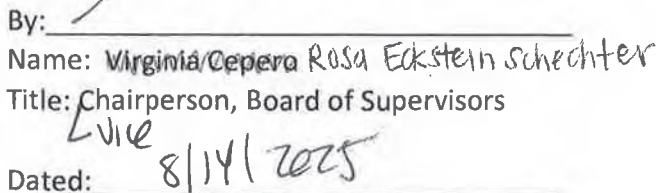 By:
Name: Virginia Cepero Rosa Eckstein Schechter
Title: Chairperson, Board of Supervisors
Vice
Dated: 8/14/2025